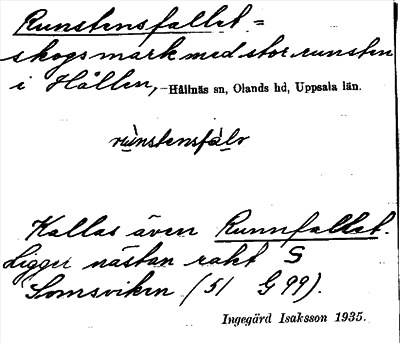 Runstensfallet =
skogsmark med stor runsten
i Hållen, Hållnäs sn, Olands hd, Uppsala län.
Kallas även Runnfallet.
Ligger nästan rakt S
Somsviken (51 G 99).
Ingegärd Isaksson 1935.